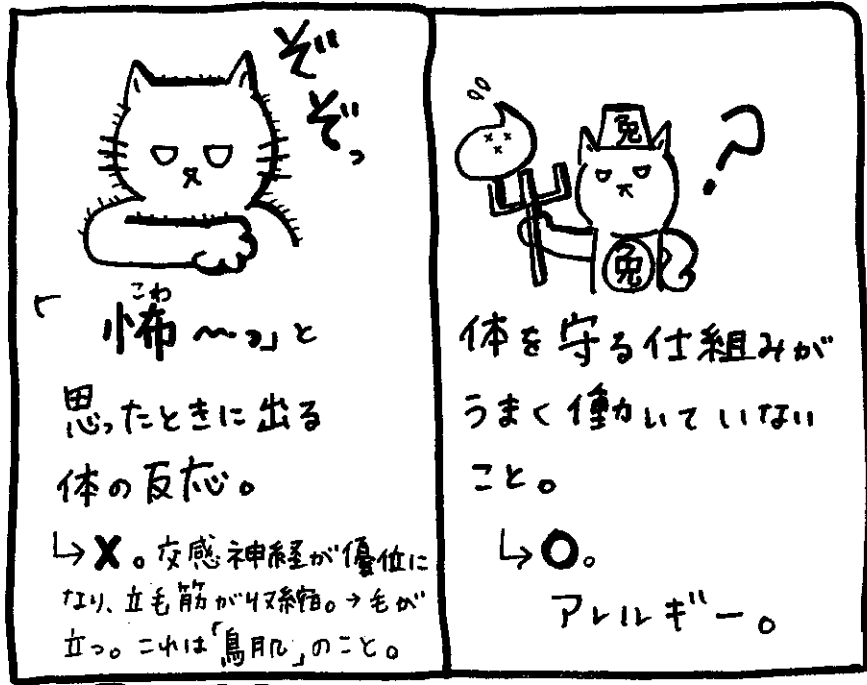 ぞ
ぞっ
「怖〜っ」と
こわ
思ったときに出る
体の反応。
↳×。交感神経が優位に
なり、立毛筋が収縮。→毛が
立つ。これは「鳥肌」のこと。
免
?
免
体を守る仕組みが
うまく働いていない
こと。
↳○。
アレルギー。